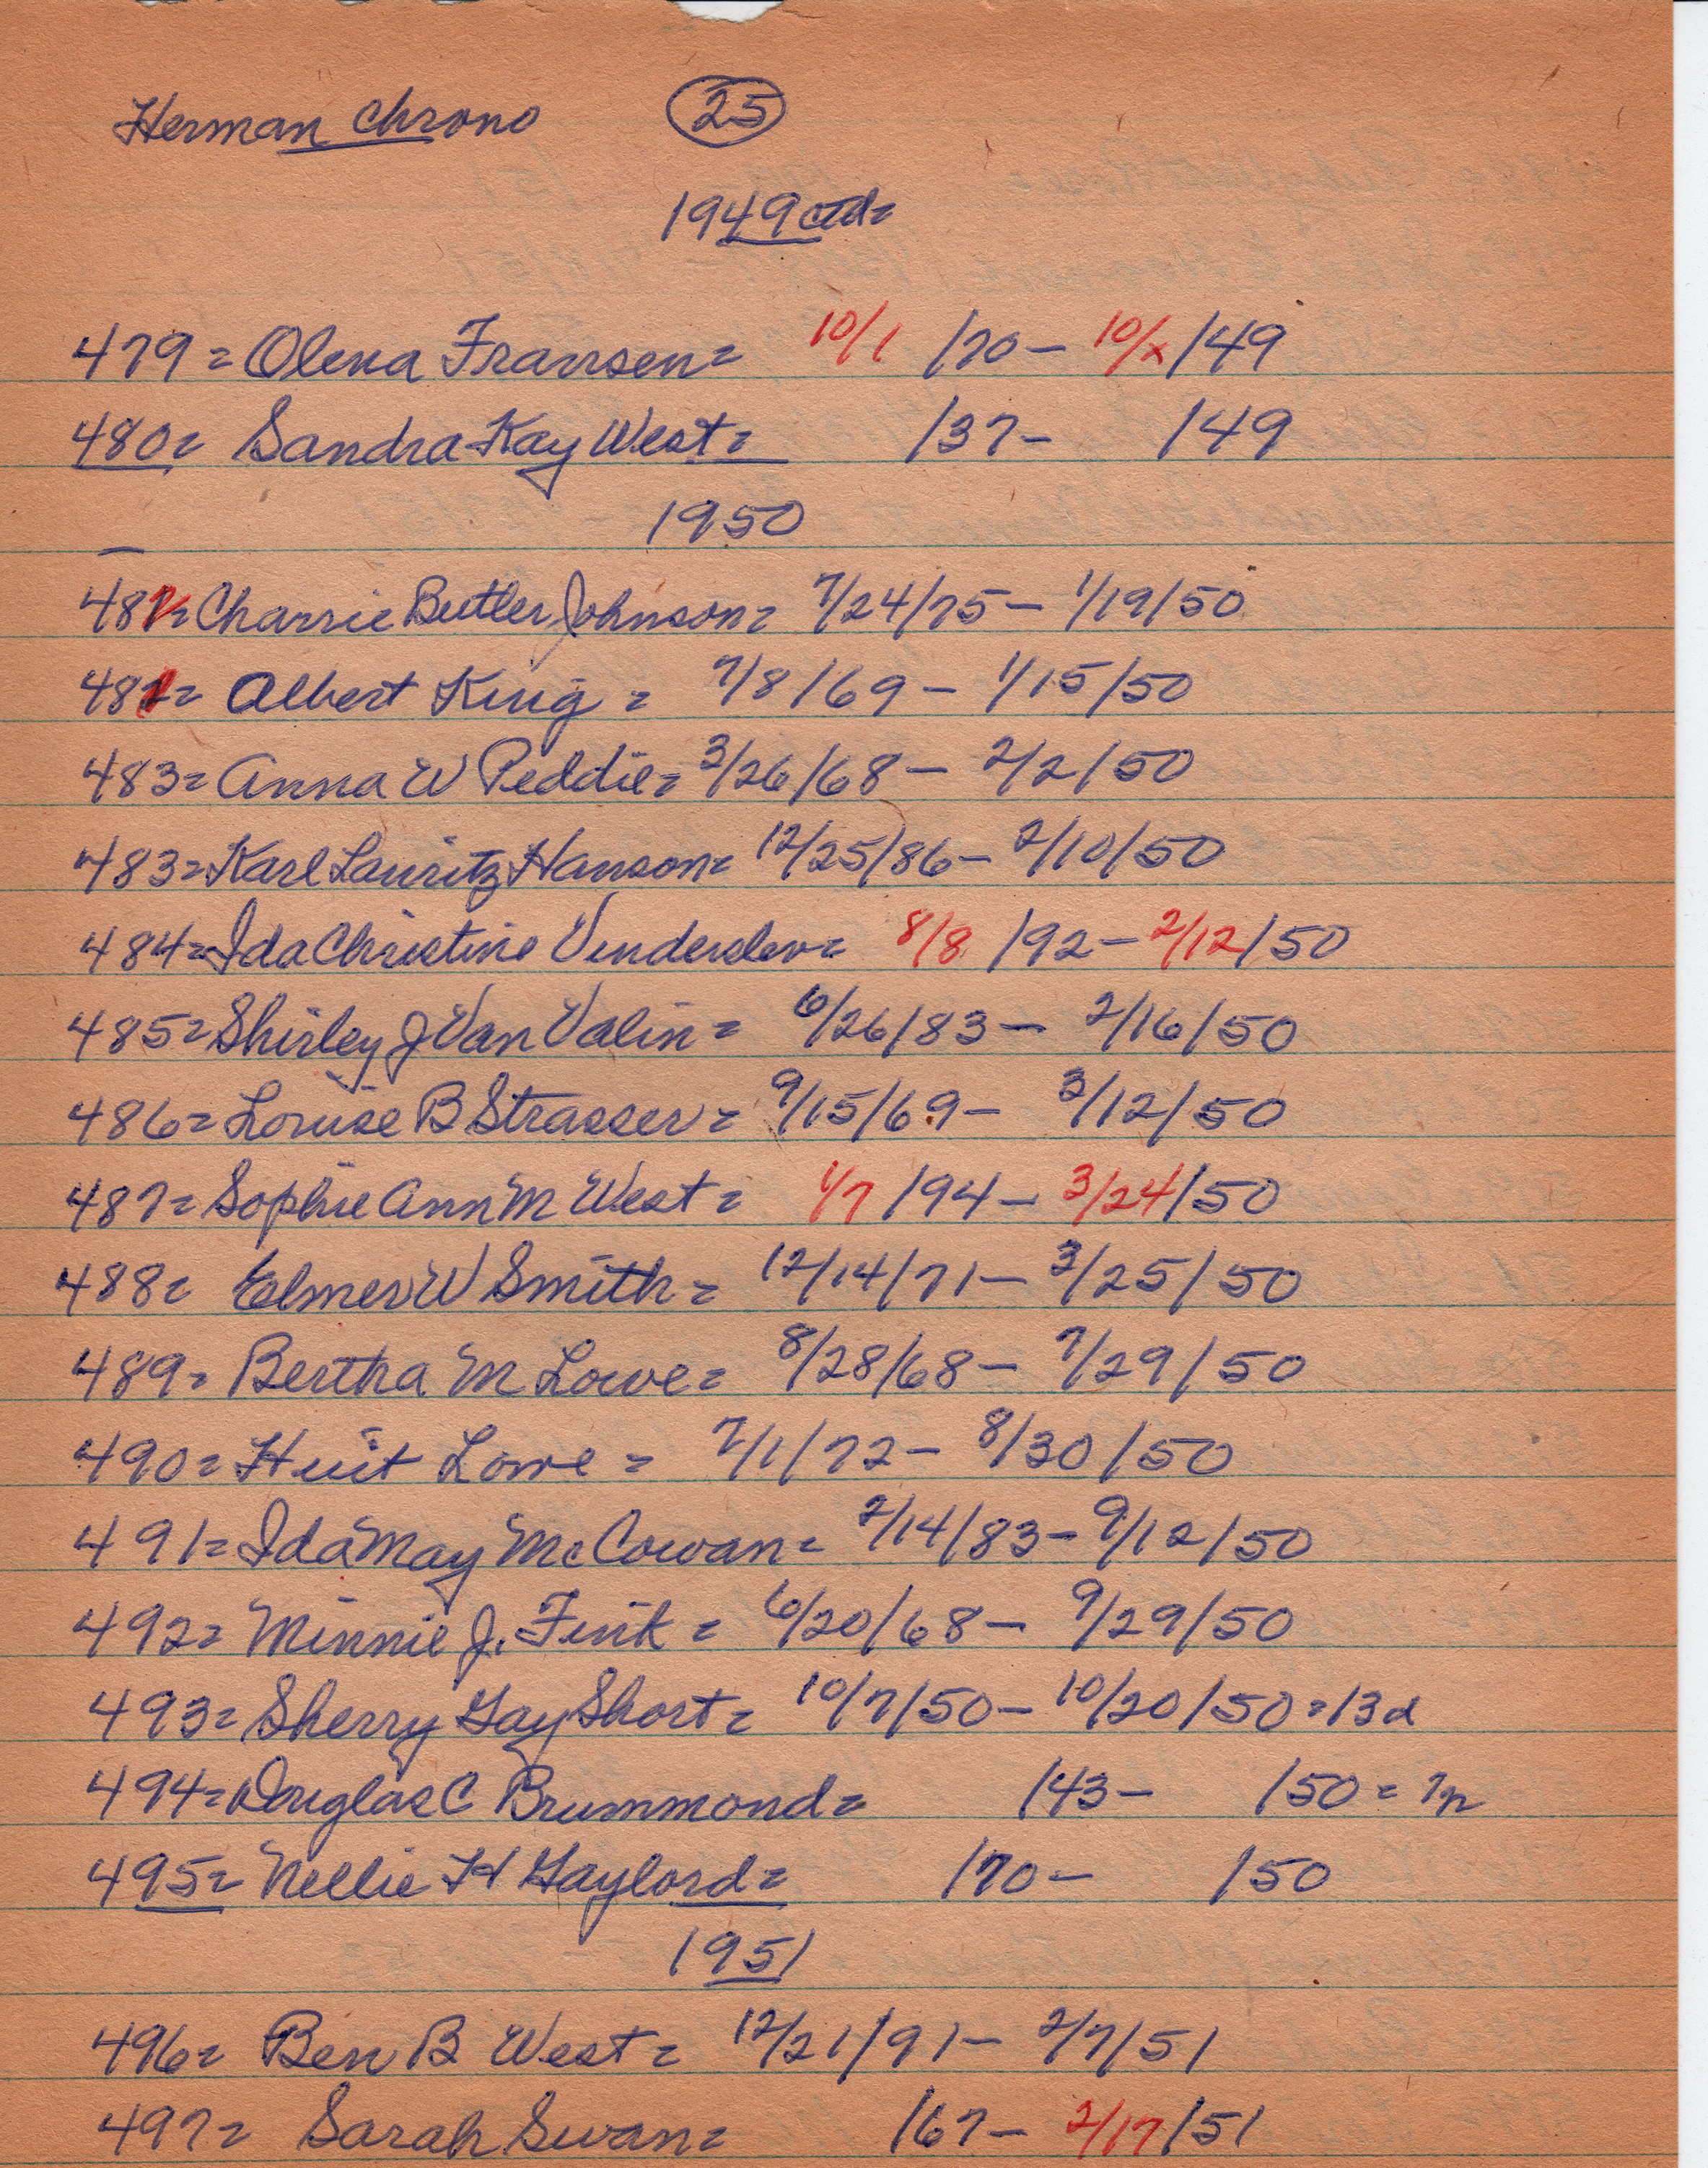 Herman Chrono 25
1949 ctd=
479= Olena Fransen= 10/1 /70- 10/x /49
480= Sandra Kay West= /37- /49
1950
482= Charrie Butler Johnson= 7/24/75- 1/19/50
481= Albert King = 7/8/69- 1/15/50
483= Anna W Peddie= 3/26/68- 2/2/50
483= Karl Lauritz Hanson= 12/25/86- 2/10/50
484= Ida Christine Vinderslev= 8/8 /92- 2/12/50
485= Shirley J Van Valin= 6/26/83- 2/16/50
486= Louise B Strasser= 9/15/69- 3/12/50
487= Sophie Ann M West= 1/7 /94- 3/24/50
488= Elmer W Smith= 12/14/71- 3/25/50
489= Bertha M Lowe= 8/28/68- 7/29/50
490= Huit Lowe = 7/1/72- 8/30/50
491= Ida May McCowan= 2/14/83- 9/12/50
492= Minnie J. Fink = 6/20/68- 9/29/50
493= Sherry Gay Short= 10/7/50- 10/20/50=13d
494= Douglas C Brummond= /43- /50 =
495= Nellie H Gaylord= /70- /50
1951
496= Ben B West= 12/21/91- 2/7/51
497= Sarah Swan= /67- 2/17/51